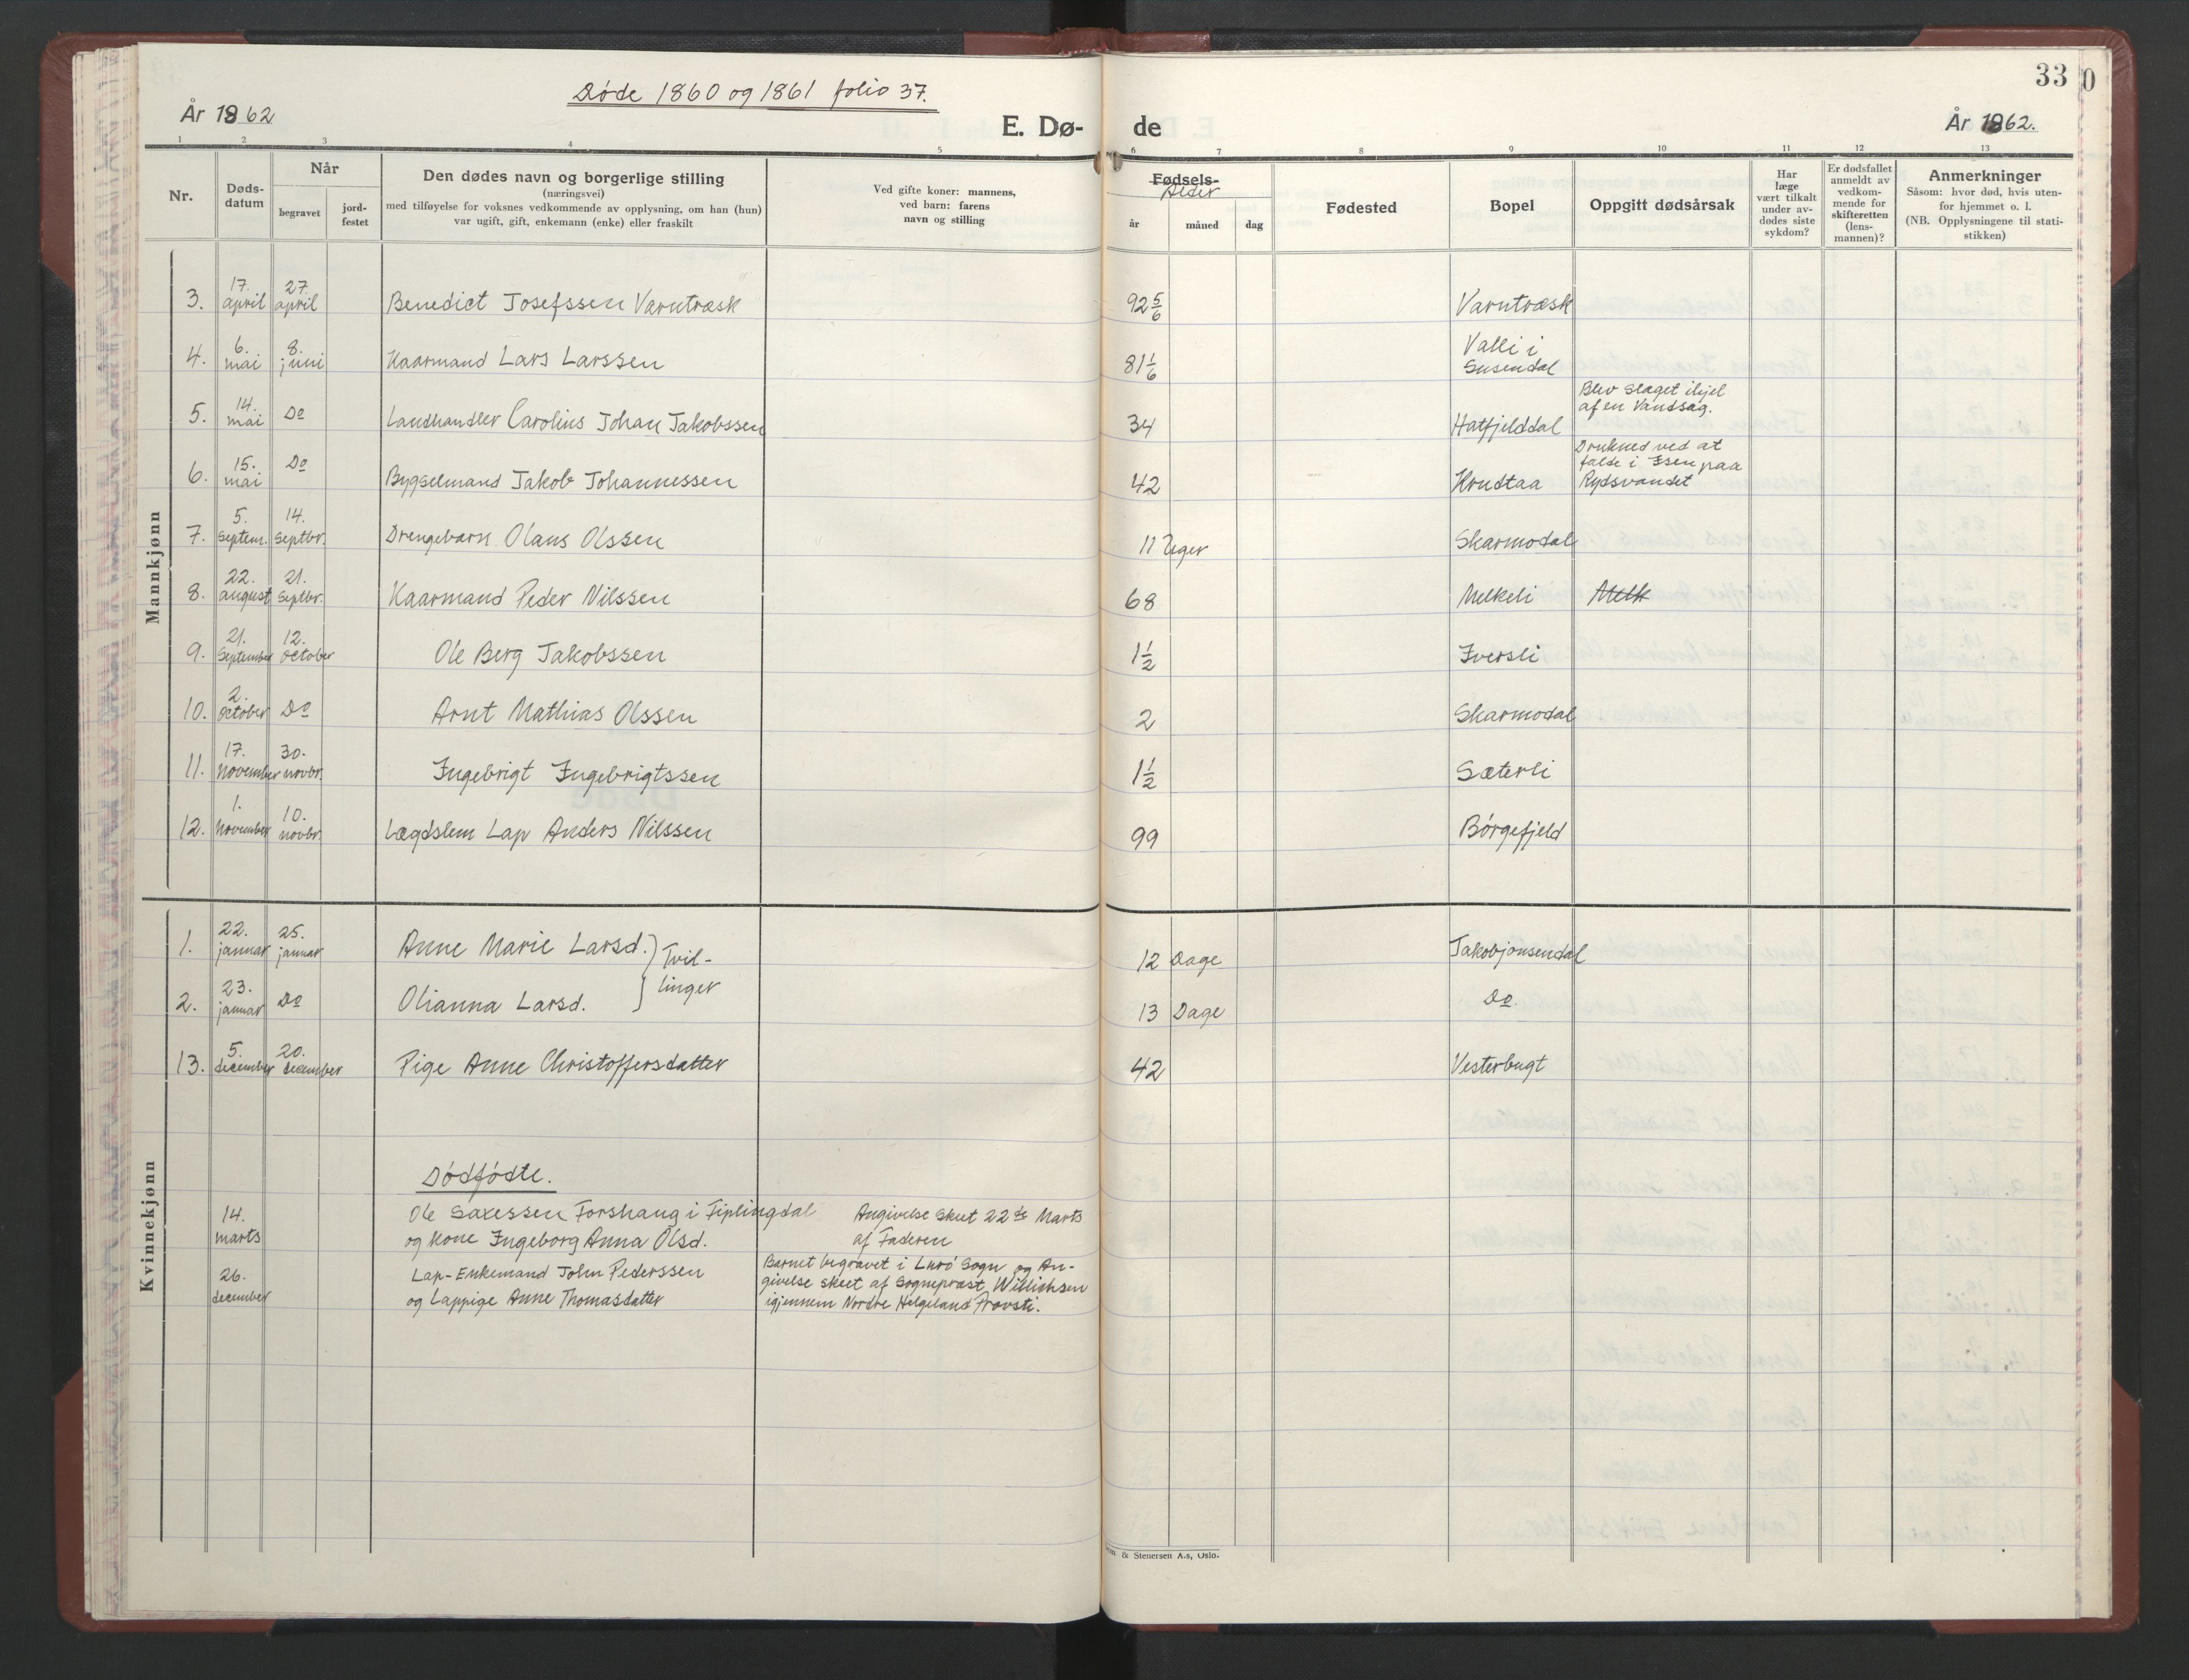 Døde 1860 og 1861 folio 37.
33
År 1862
E. Dø-
de
År 1862.
1 2 3 4 5 6 7 8 9 10 11 12 13
Nr.
Døds-
datum
Når
begravet
jord-
festet
Den dødes navn og borgerlige stilling
(næringsvei)
med tilføyelse for voksnes vedkommende av opplysning, om han (hun)
var ugift, gift, enkemann (enke) eller fraskilt
Ved gifte koner: mannens,
ved barn: farens
navn og stilling
Fødsels-
Alder
år måned dag
Fødested
Bopel
Oppgitt dødsårsak
Har
læge
vært tilkalt
under av-
dødes siste
sykdom?
Er dødsfallet
anmeldt av
vedkom-
mende for
skifteretten
(lens-
mannen)?
Anmerkninger
Såsom: hvor død, hvis uten-
for hjemmet o. l.
(NB. Opplysningene til stati-
stikken)
Mannkjønn
3. 17. april 27. april Benedict Josefssen Varntræsk 92 5/6 Varntræsk
4. 6. mai 8. juni Kaarmand Lars Larssen 81 1/6 Valli i
Susendal
5. 14. mai Do Landhandler Carolius Johan Jakobssen 34 Hatfjelddal Blev slaget ihjel
af en Vandsag.
6. 15. mai Do Bygselmand Jakob Johannessen 42 Krudtaa Drukned ved at
falde i Isen paa
Rydsvandet
7. 5. Septem. 14. Septbr. Drengebarn Olaus Olssen 11 Uger Skarmodal
8. 22. august 21. Septbr. Kaarmand Peder Nilssen 68 Melkeli Melk
9. 21. September 12. October Ole Berg Jakobssen 1 1/2 Iversli
10. 2. October Do Arnt Mathias Olssen 2 Skarmodal
11. 17. November 30. novbr. Ingebrigt Ingebrigtssen 1 1/2 Sæterli
12. 1. November 10. novbr. Lægdslem Lap Anders Nilssen 99 Börgefjeld
Kvinnekjønn
1. 22. januar 25. januar Anne Marie Larsd. } Tvil- 12 Dage Jakobjonsendal
2. 23. januar Do Olianna Larsd. } linger 13 Dage Do.
13. 5. december 20. december Pige Anne Christoffersdatter 42 Vesterbugt
Dödfödte.
14. marts Ole Saxessen Forshaug i Tiplingdal Angivelse skeet 22de Marts
og Kone Ingeborg Anna Olsd. af Faderen
26. december Lap-Enkemand John Pederssen Barnet begravet i Lurö Sogn og An-
og Lappige Anne Thomasdatter givelse skeet af Sognepræst Willichsen
igjennem Nordre Helgeland Provsti.
& Stenersen A.s, Oslo.